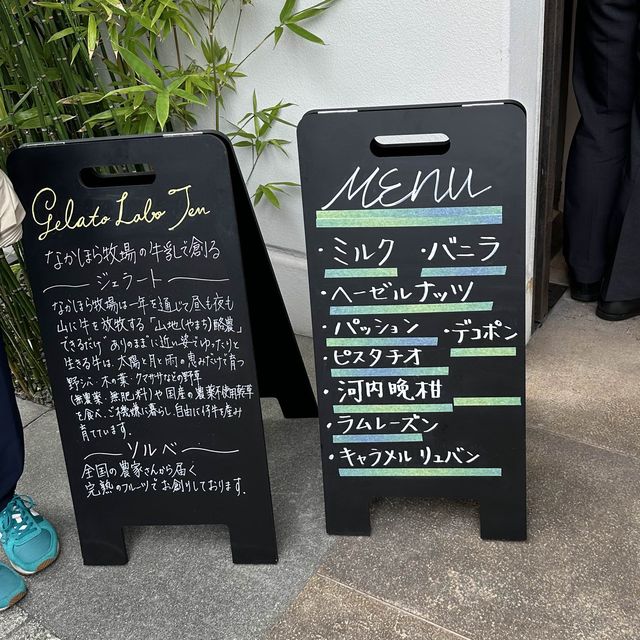 Gelato Labo Ten
なかほら牧場の牛乳で創る
ジェラート
なかほら牧場は一年を通じて昼も夜も
山に牛を放牧する"山地(やまち)酪農"
できるだけ"ありのままに近い姿でゆったりと
生きる牛は、太陽と月と雨の恵みだけで育つ
野シバ・木の葉・クマザサなどの野草
(無農薬、無肥料)や国産の農薬不使用乾草
を食べ、ご機嫌に暮らし、自由に仔牛を産み
育てています。
ソルベ
全国の農家さんから届く
完熟のフルーツでお創りしております。
MENU
・ミルク ・バニラ
・ヘーゼルナッツ
・パッション ・デコポン
・ピスタチオ
・河内晩柑
・ラムレーズン
・キャラメル リュバン